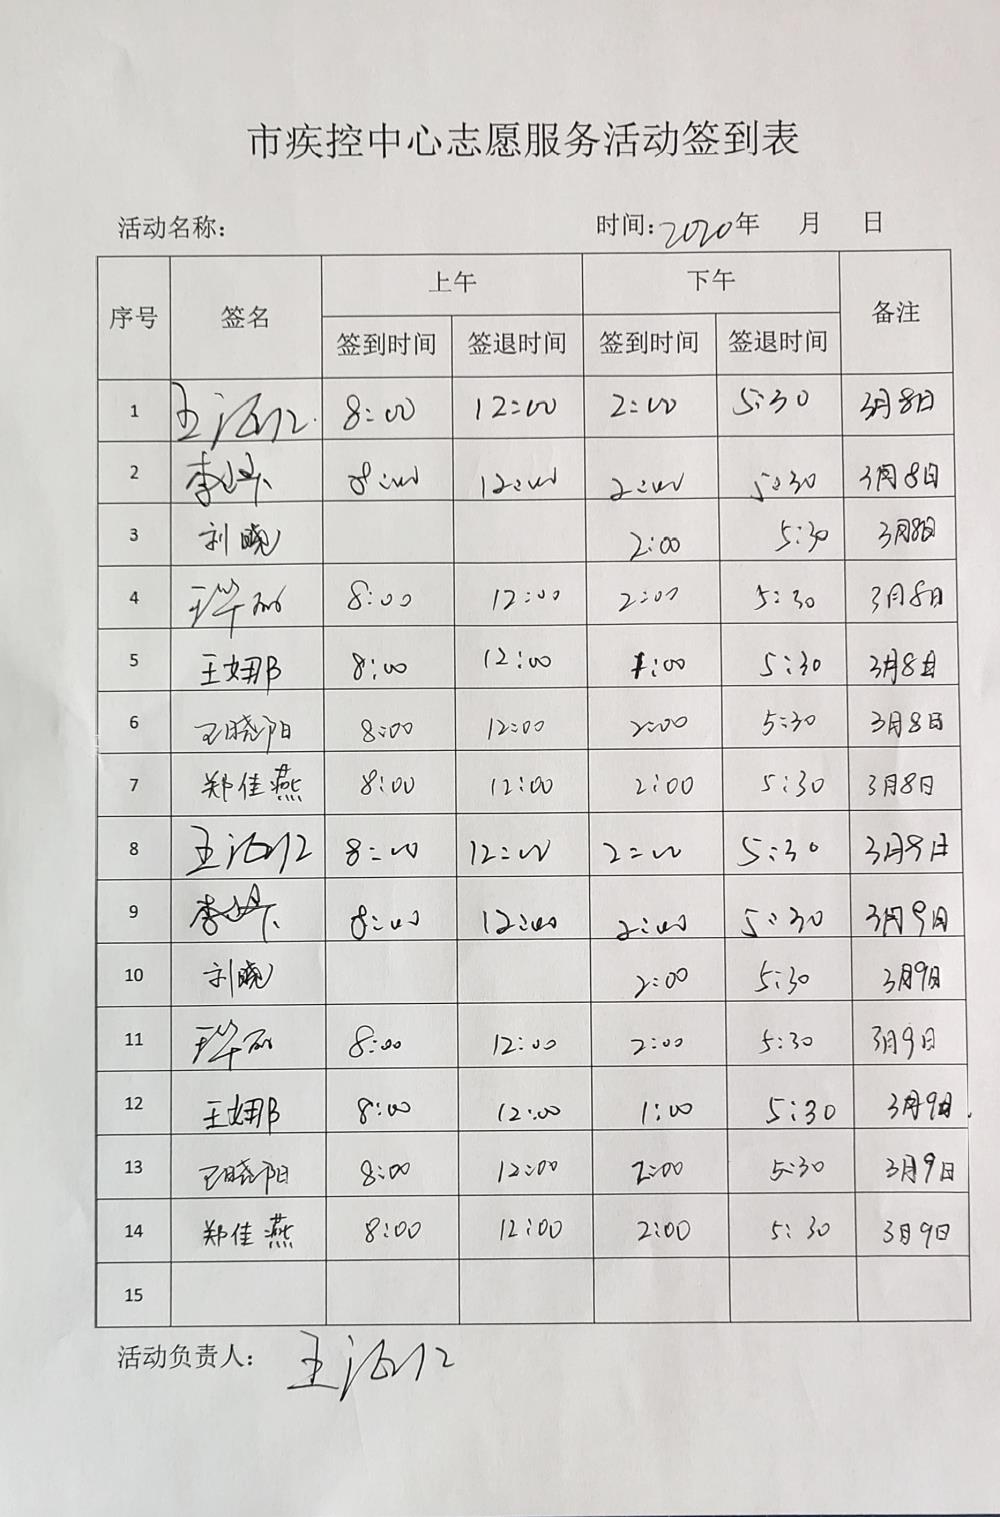 市疾控中心志愿服务活动签到表
活动名称: 时间:2020年 月 日
序号 签名 上午 下午 备注
签到时间 签退时间 签到时间 签退时间
1 8:00 12:00 2:00 5:30 3月8日
2 8:00 12:00 2:00 5:30 3月8日
3 刘晓 2:00 5:30 3月8日
4 8:00 12:00 2:00 5:30 3月8日
5 王娜 8:00 12:00 1:00 5:30 3月8日
6 王晓阳 8:00 12:00 2:00 5:30 3月8日
7 郑佳燕 8:00 12:00 2:00 5:30 3月8日
8 8:00 12:00 2:00 5:30 3月9日
9 8:00 12:00 2:00 5:30 3月9日
10 刘晓 2:00 5:30 3月9日
11 8:00 12:00 2:00 5:30 3月9日
12 王娜 8:00 12:00 1:00 5:30 3月9日
13 王晓阳 8:00 12:00 2:00 5:30 3月9日
14 郑佳燕 8:00 12:00 2:00 5:30 3月9日
15
活动负责人: